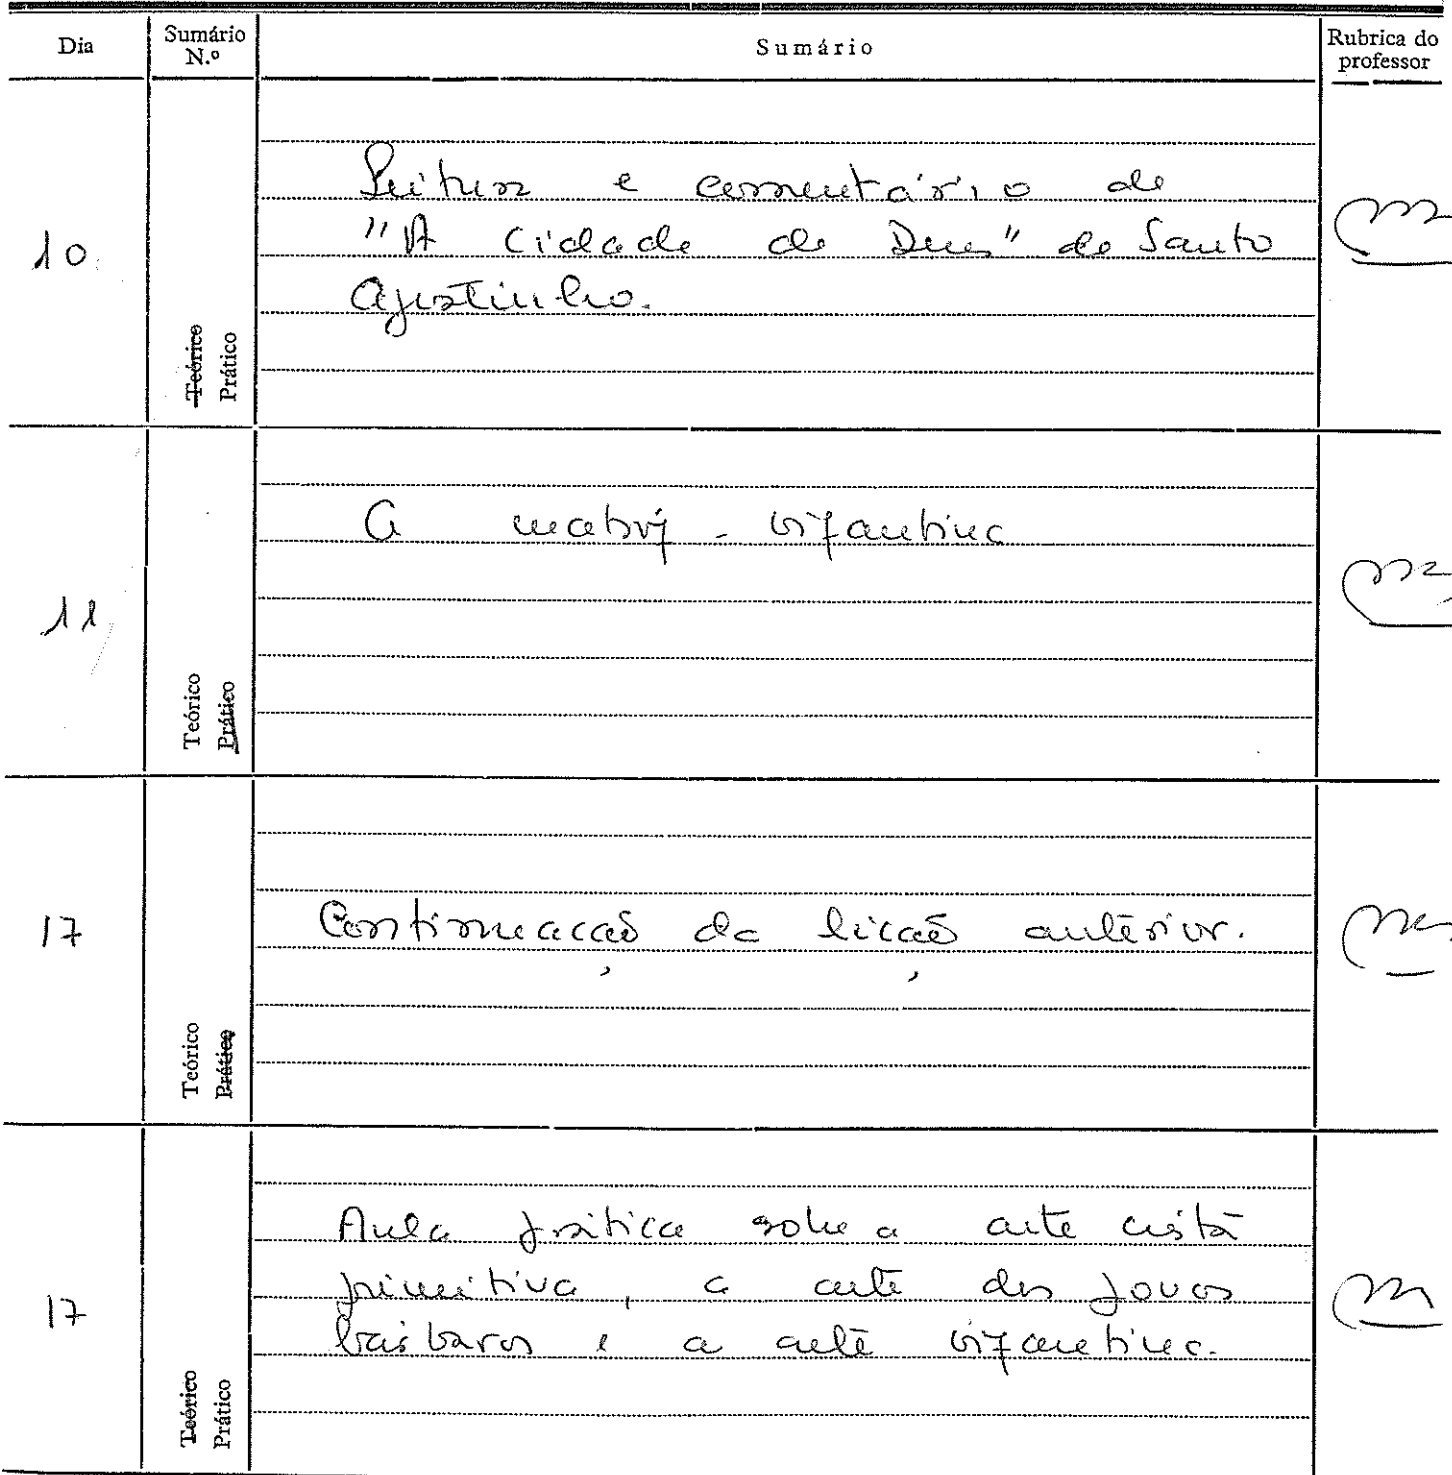 Dia
Sumário N.º
Sumário
Rubrica do professor
10
Teórico
Prático
Leitura e comentário de
"A Cidade de Deus" de Santo
Agostinho.
11
Teórico
Prático
A matriz bizantina
17
Teórico
Prático
Continuação da lição anterior.
17
Teórico
Prático
Aula prática sobre a arte cristã
primitiva, a arte dos povos
bárbaros e a arte bizantina.